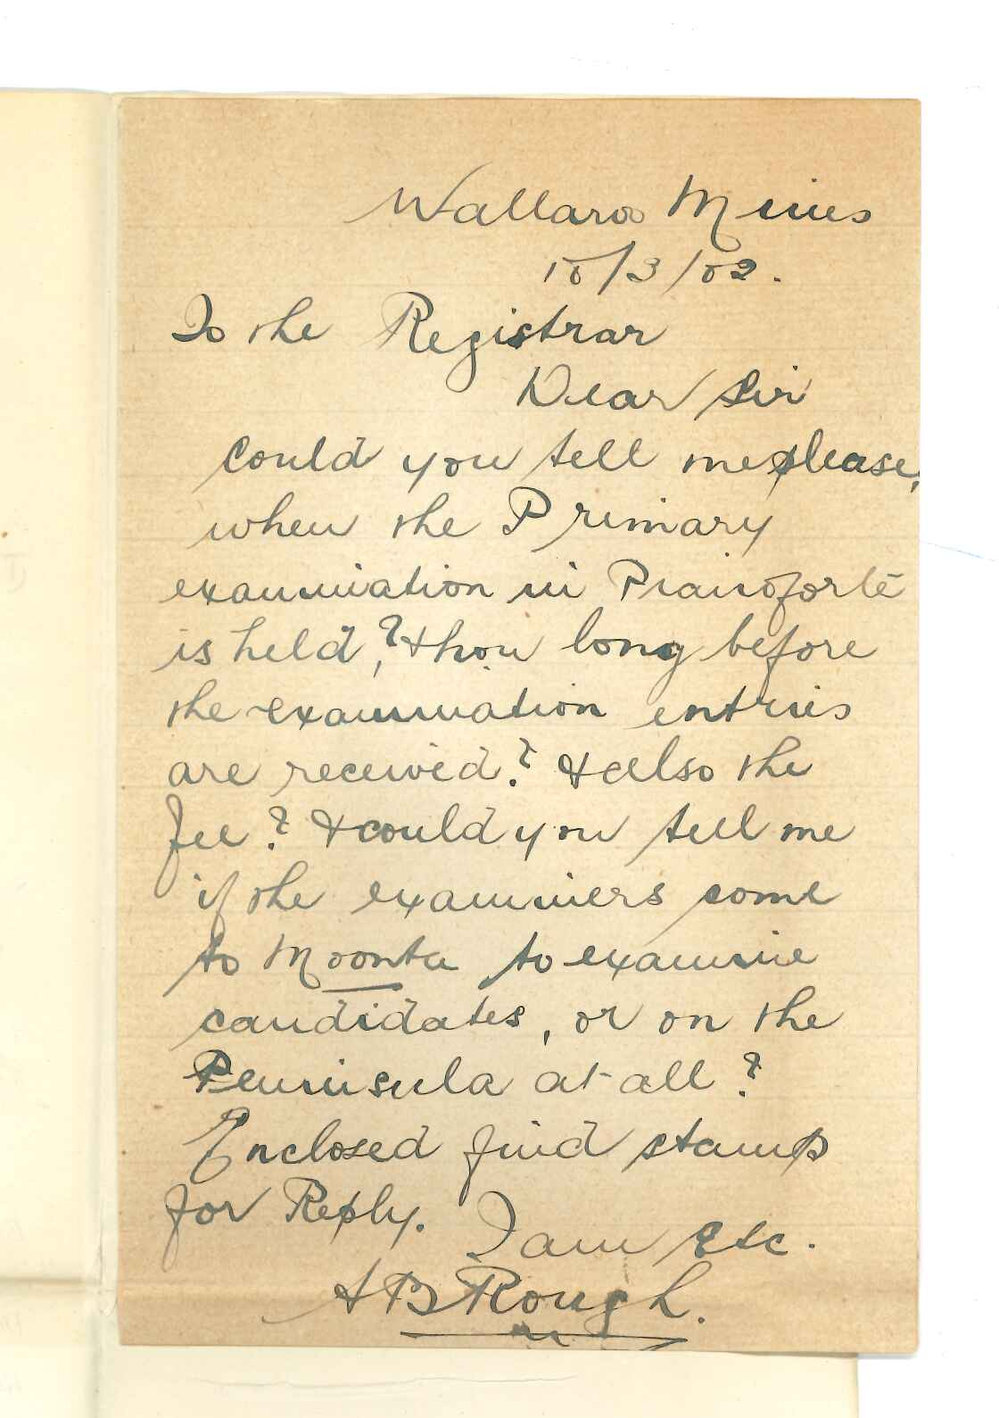 Wallaroo Mines
10/3/02.
To the Registrar
Dear Sir
Could you tell me please,
when the Primary
examination in Pianoforte
is held,? & how long before
the examination entries
are received? & also the
fee? & could you tell me
if the examiners come
to Moonta to examine
candidates, or on the
Peninsula at all?
Enclosed find stamp
for Reply.
I am etc.
A B Rough.